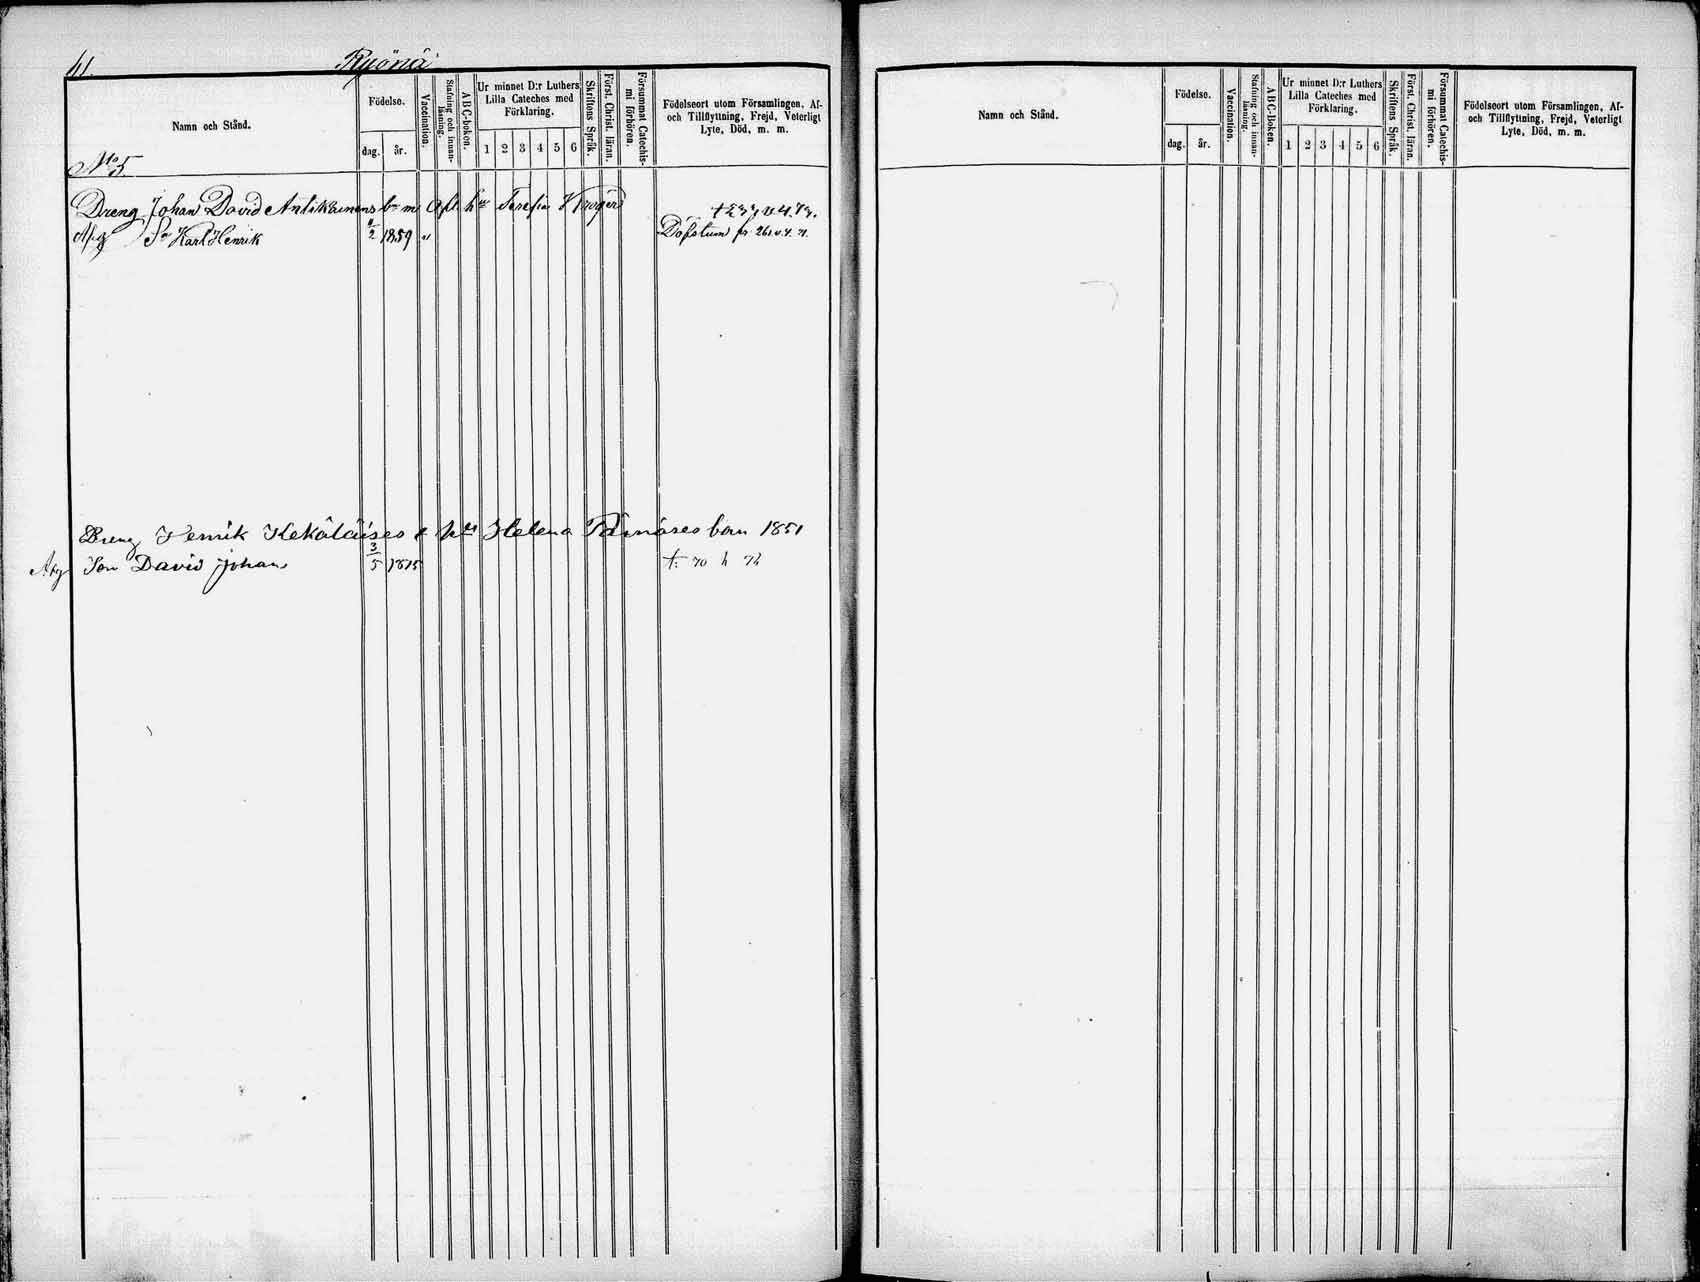 41. Ryönä
Namn och Stånd.
Födelse.
dag. år.
Vaccination.
Stafning och innanläsning.
ABC-boken.
Ur minnet D:r Luthers
Lilla Cateches med
Förklaring.
1 2 3 4 5 6
Skriftens Språk.
Först. Christ. läran.
Försummat Catechismi förhören.
Födelseort utom Församlingen, Af-
och Tillflyttning, Frejd, Veterligt
Lyte, Död, m. m.
No 5
Dreng Johan David Antikainens bn m Afl. h
Sn Karl Henrik 1859 "
Dreng Henrik Kekäläises Helena barn 1851
Son David Johan 3/5 1815 70 h 72
Namn och Stånd.
Födelse.
dag. år.
Vaccination.
Stafning och innanläsning.
ABC-boken.
Ur minnet D:r Luthers
Lilla Cateches med
Förklaring.
1 2 3 4 5 6
Skriftens Språk.
Först. Christ. läran.
Försummat Catechismi förhören.
Födelseort utom Församlingen, Af-
och Tillflyttning, Frejd, Veterligt
Lyte, Död, m. m.